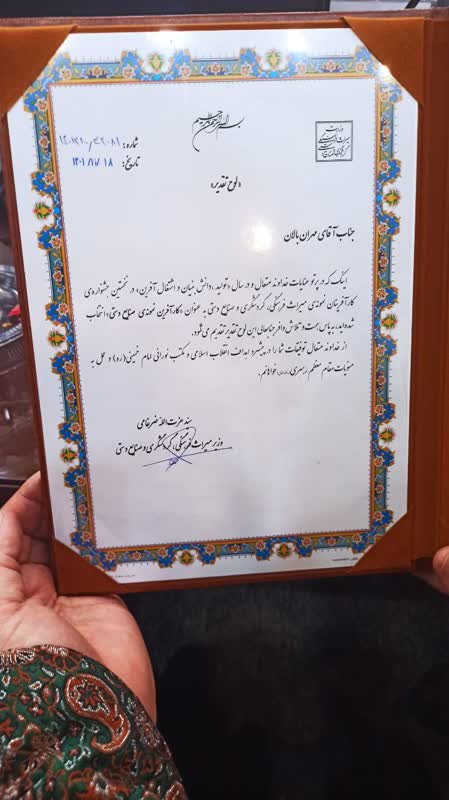 بسم الله الرحمن الرحیم
وزارت
میراث فرهنگی
گردشگری و صنایع دستی
شماره:
تاریخ: ۱۴۰۱/۱۰/۱۸
«لوح تقدیر»
جناب آقای مهران بالان
اینک که در پرتو عنایات خداوند متعال و در سال «تولید، دانش بنیان و اشتغال آفرین» در نخستین جشنواره‌ی
کارآفرینان نمونه‌ی میراث فرهنگی، گردشگری و صنایع دستی به عنوان «کارآفرین نمونه‌ی صنایع دستی» انتخاب
شده‌اید، به پاس همت و تلاش وافر جنابعالی این لوح تقدیر تقدیم می‌شود.
از خداوند متعال توفیقات شما را در پیشبرد اهداف انقلاب اسلامی و مکتب نورانی امام خمینی (ره) و عمل به
منویات مقام معظم رهبری خواهانم.
سید عزت‌الله ضرغامی
وزیر میراث فرهنگی، گردشگری و صنایع دستی